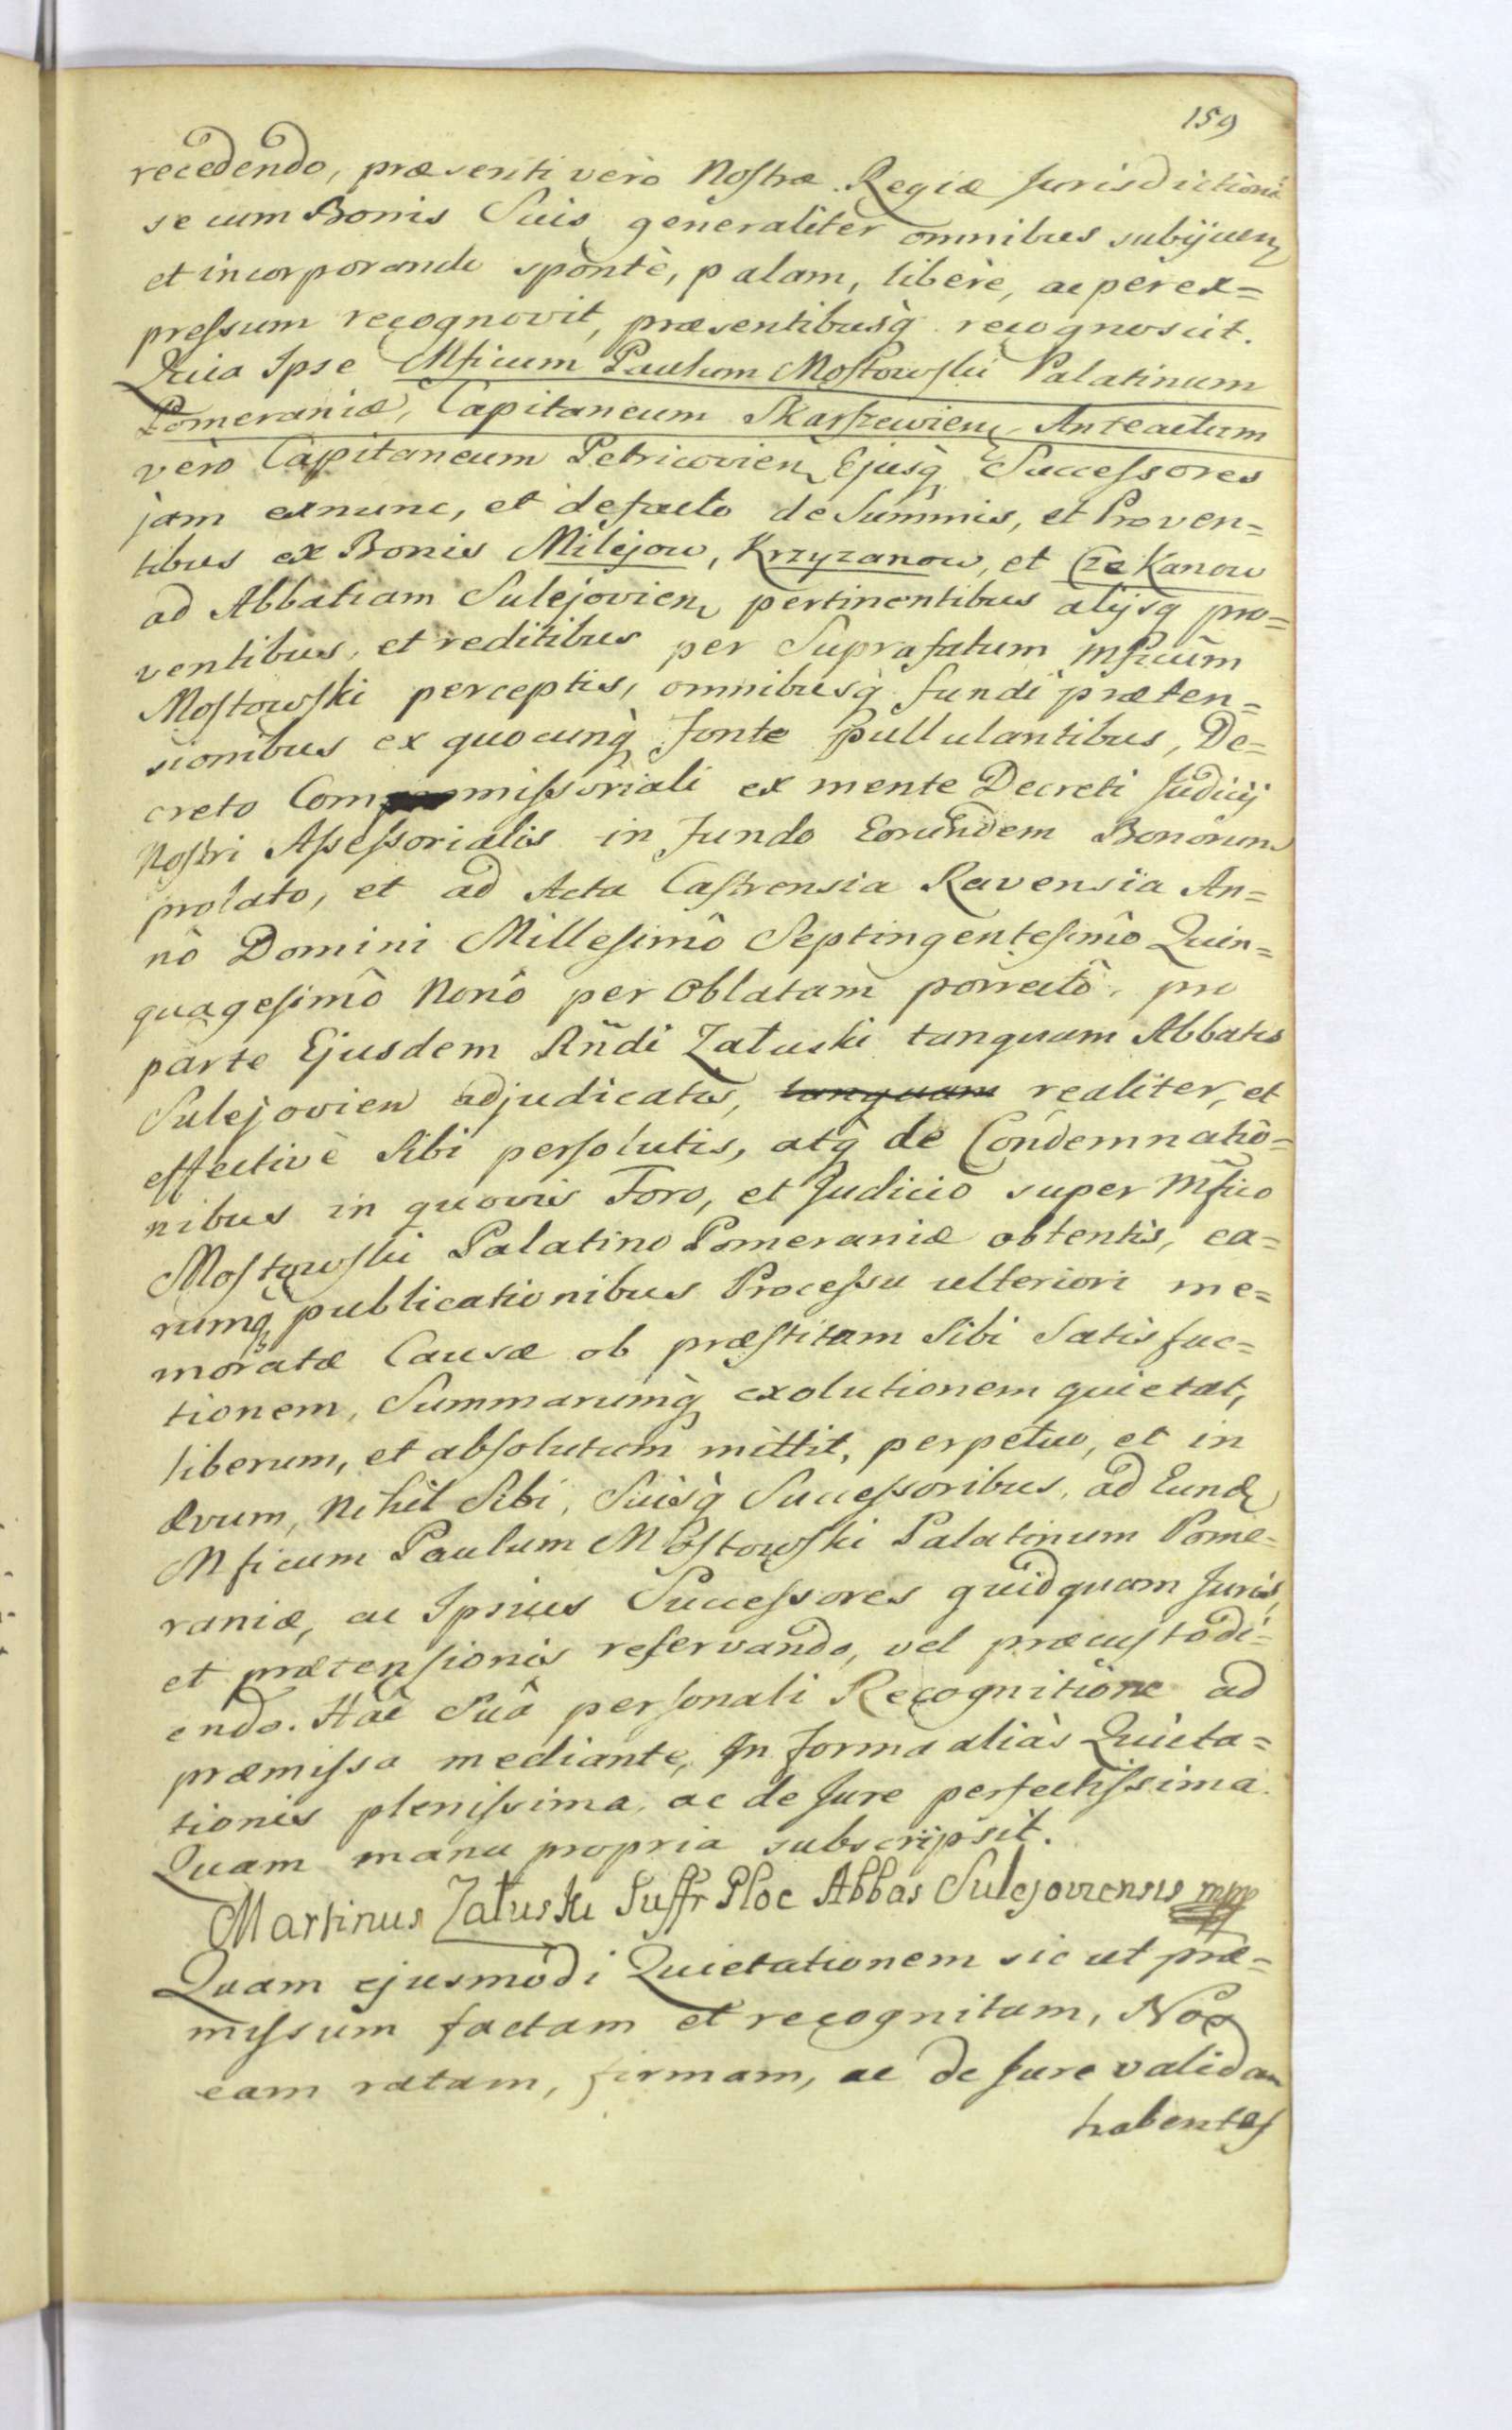 159
recedendo, præsenti verò Nostræ Regiæ Jurisdictioni
se cum Bonis Suis generaliter omnibus subijcien
et incorporando spontè, palam, liberè, ac per ex=
pressum recognovit, præsentibusq̀ recognoscit.
Quia Ipse Mficum Paulum Mostowski Palatinum
Pomeraniæ, Capitaneum Skarszewien, Anteactum
verò Capitaneum Petricovien Ejusq̀ Successores
jam exnunc, et defacto de Summis, et Proven=
tibus ex Bonis Milejow, Krzyzanow, et Czekanow
ad Abbatiam Sulejovien pertinentibus alijsq pro=
ventibus, et reditibus per Suprafatum Mficum
Mostowski perceptis, omnibusq̀ fundi præten=
sionibus ex quocunq̀ fonte pullulantibus, De=
creto Commissoriali ex mente Decreti Judicij
Nostri Assessorialis in fundo Eorundem Bonorum
prolato, et ad Acta Castrensia Ravensia An=
nô Domini Millesimô Septingentesimô Quin=
quagesimô Nonô per Oblatam porrectô, pro
parte Ejusdem Rndi Załuski tanquam Abbatis
Sulejovien adjudicatis, tanquam realiter, et
effectivè Sibi persolutis, atq̀ de Condemnatio=
nibus in quovis Foro, et Judicio super Mfico
Mostowski Palatino Pomeraniæ obtentis, ea=
rumq̀ publicationibus Processu ulteriori me=
moratæ Causæ ob præstitam Sibi Satisfac=
tionem, Summarumq̀ exolutionem quietat,
liberum, et absolutum mittit, perpetuo, et in
ævum, Nihil Sibi, Suisq̀ Successoribus, ad Eund
Mficum Paulum Mostowski Palatinum Pome=
raniæ, ac Ipsius Successores quidquam Juris,
et prætensionis reservando, vel præcustodi=
endo. Hac Suâ personali Recognitione ad
præmissa mediante, In forma aliàs Quieta=
tionis plenissima, ac de Jure perfectissima.
Quam manu propria subscripsit.
Martinus Załuski Suffr Ploc Abbas Sulejoviensis mpp
Quam ejusmodi Quietationem sic ut præ=
missum factam et recognitam, Nos
eam ratam, firmam, ac de Jure validam
habentes